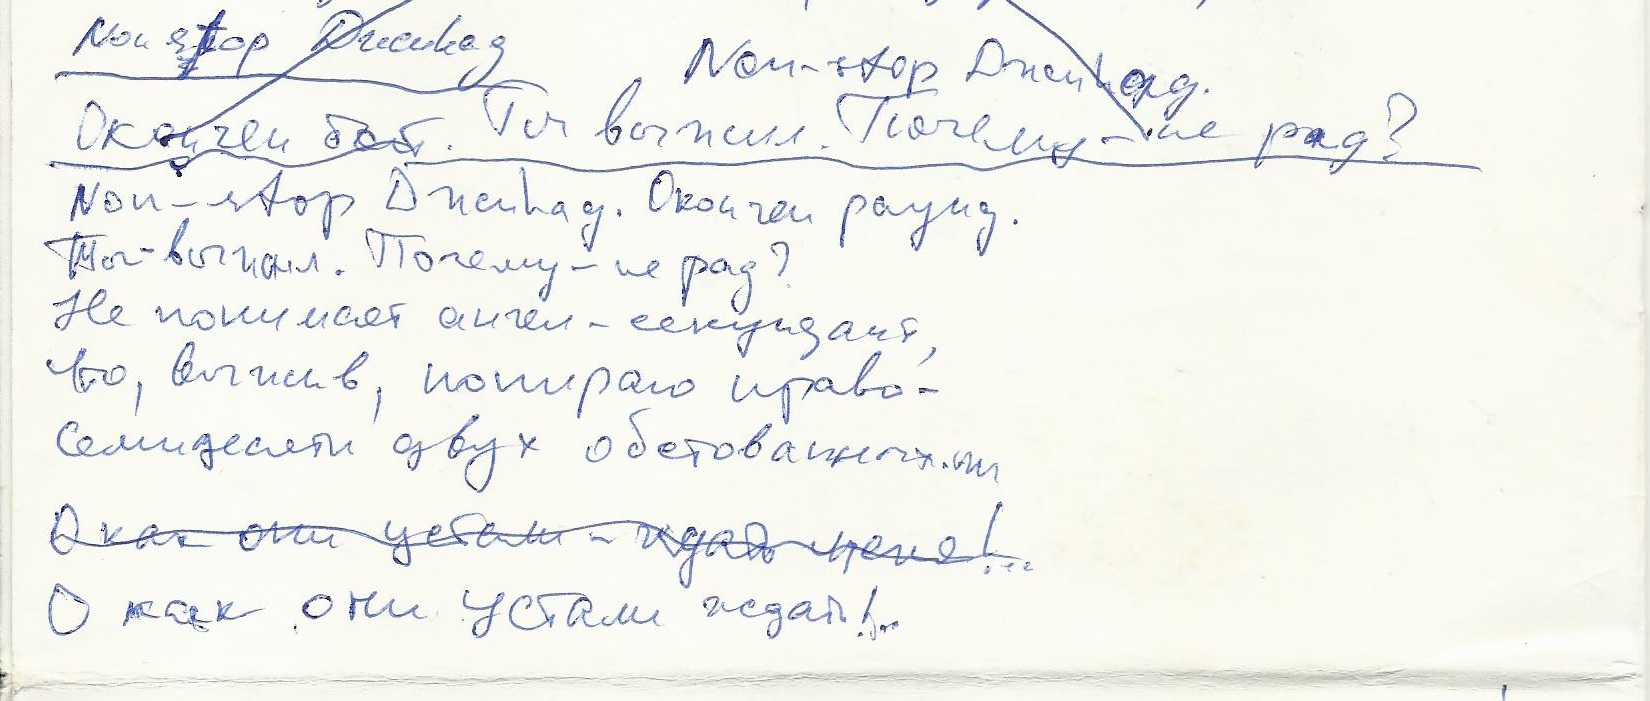 Non stop Джихад
Non-stop Джихад.
Окончен бой. Ты выжил. Почему-не рад?
Non-stop Джихад. Окончен раунд.
Ты-выжил. Почему-не рад?
Не понимает ангел-секундант,
Что, выжив, попираю право-
Семидесяти двух обетованных...
О как они устали-ждать меня!...
О как они устали ждать!..